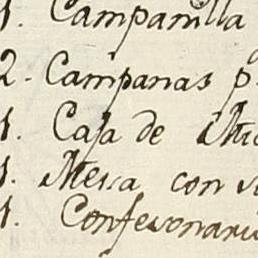 1. Campanilla
2. Campanas p
1. Caja de
1. Mesa con
1. Confesonari